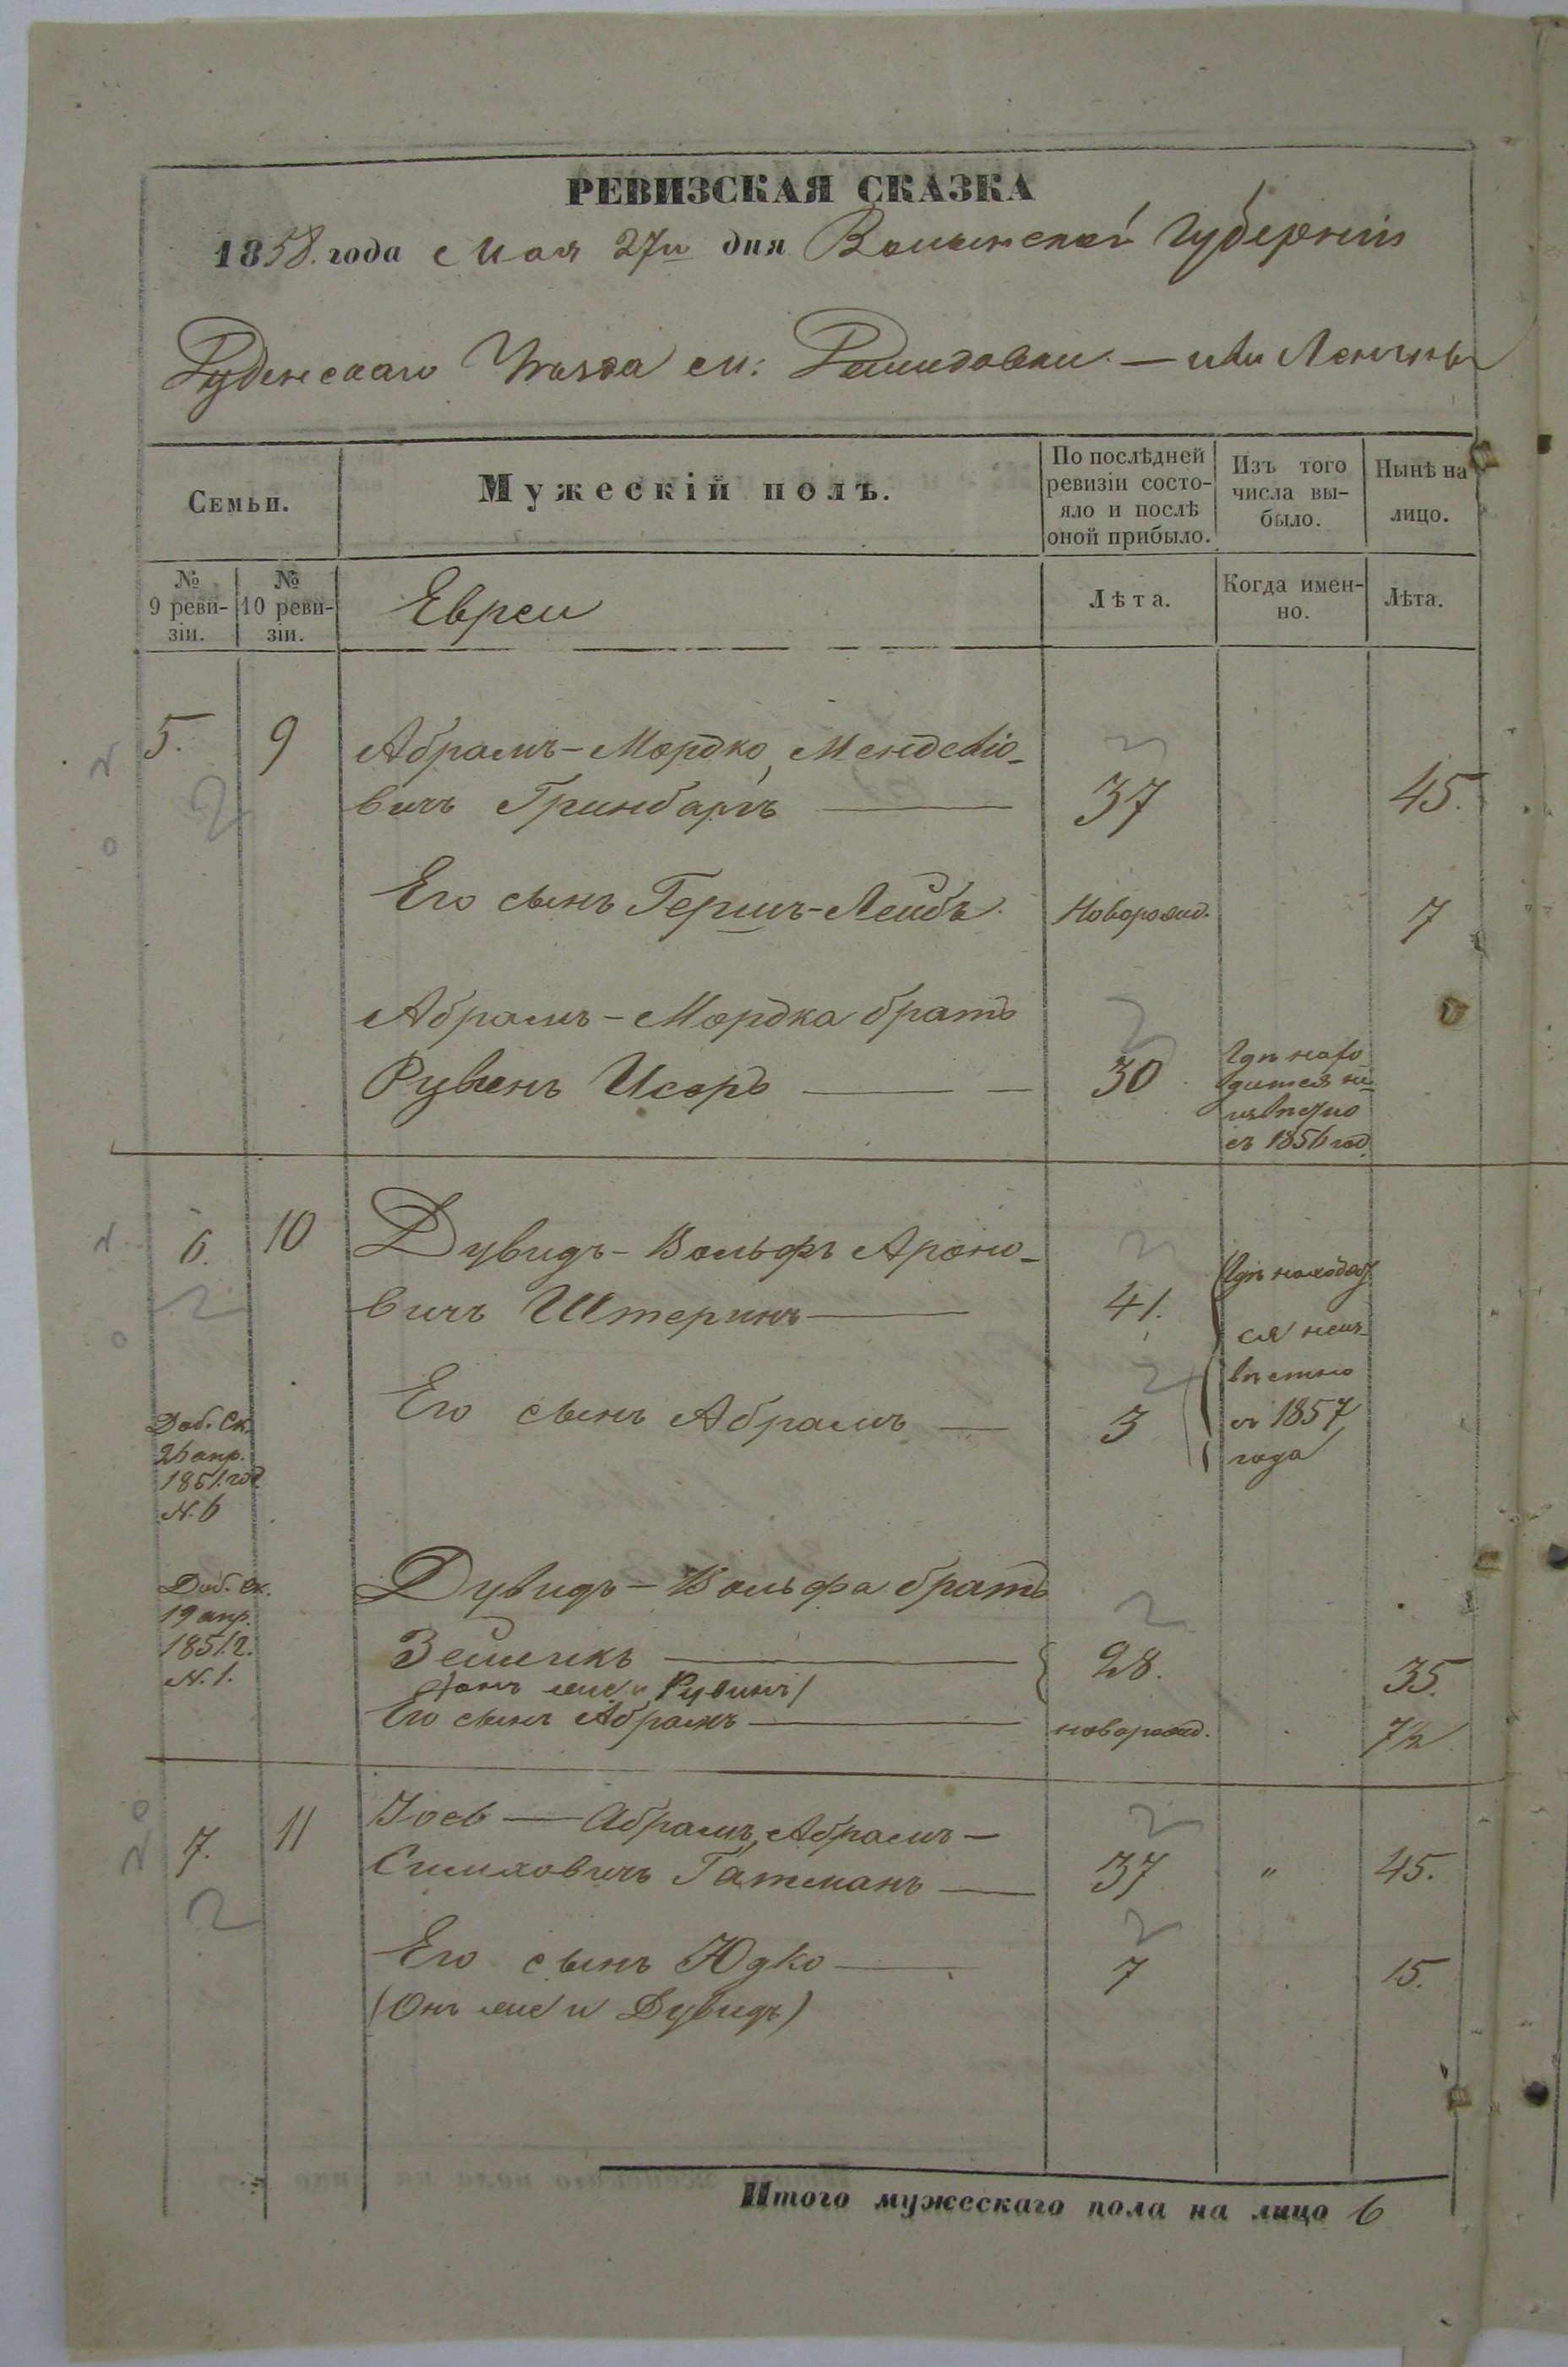 РЕВИЗСКАЯ СКАЗКА
1858. года Мая 27го дня Волынской Губерніи
Уѣзда м: — или
Семьи.
Мужескій полъ.
По послѣдней
ревизіи состо-
яло и послѣ
оной прибыло.
Изъ того
числа вы-
было.
Нынѣ на
лицо.
№
9 реви-
зіи.
№
10 реви-
зіи.
Евреи
Лѣта.
Когда имен-
но.
Лѣта.
5. 9 Абрамъ-Мордко Менделіо-
вичъ Гринбаргъ 37 45.
Его сынъ Гершъ-Лейбъ. Новорожд. 7
Абрамъ-Мордка братъ
Рувенъ Исеръ 30
Гдѣ нахо
дится не-
извѣстно
съ 1856 год.
6. 10 Дувидъ-Вольфъ Ароно-
вичъ Штеринъ 41.
Его сынъ Абрамъ 3
Гдѣ находят
ся неиз-
вѣстно
съ 1857
года
Доб. Ск.
26 апр.
1851. год
N. 6
Доб. Ск.
19 апр.
1851. г.
N. 1.
Дувидъ-Вольфа братъ
Зейликъ 28. 35.
(онъ же и Рувинъ)
Его сынъ Абрамъ новорожд. 7½
7. 11 Іось — Абрамъ, Абрамъ-
Симховичъ Гатманъ 37 " 45.
Его сынъ Юдко 7 15.
(Онъ же и Дувидъ)
Итого мужескаго пола на лицо 6